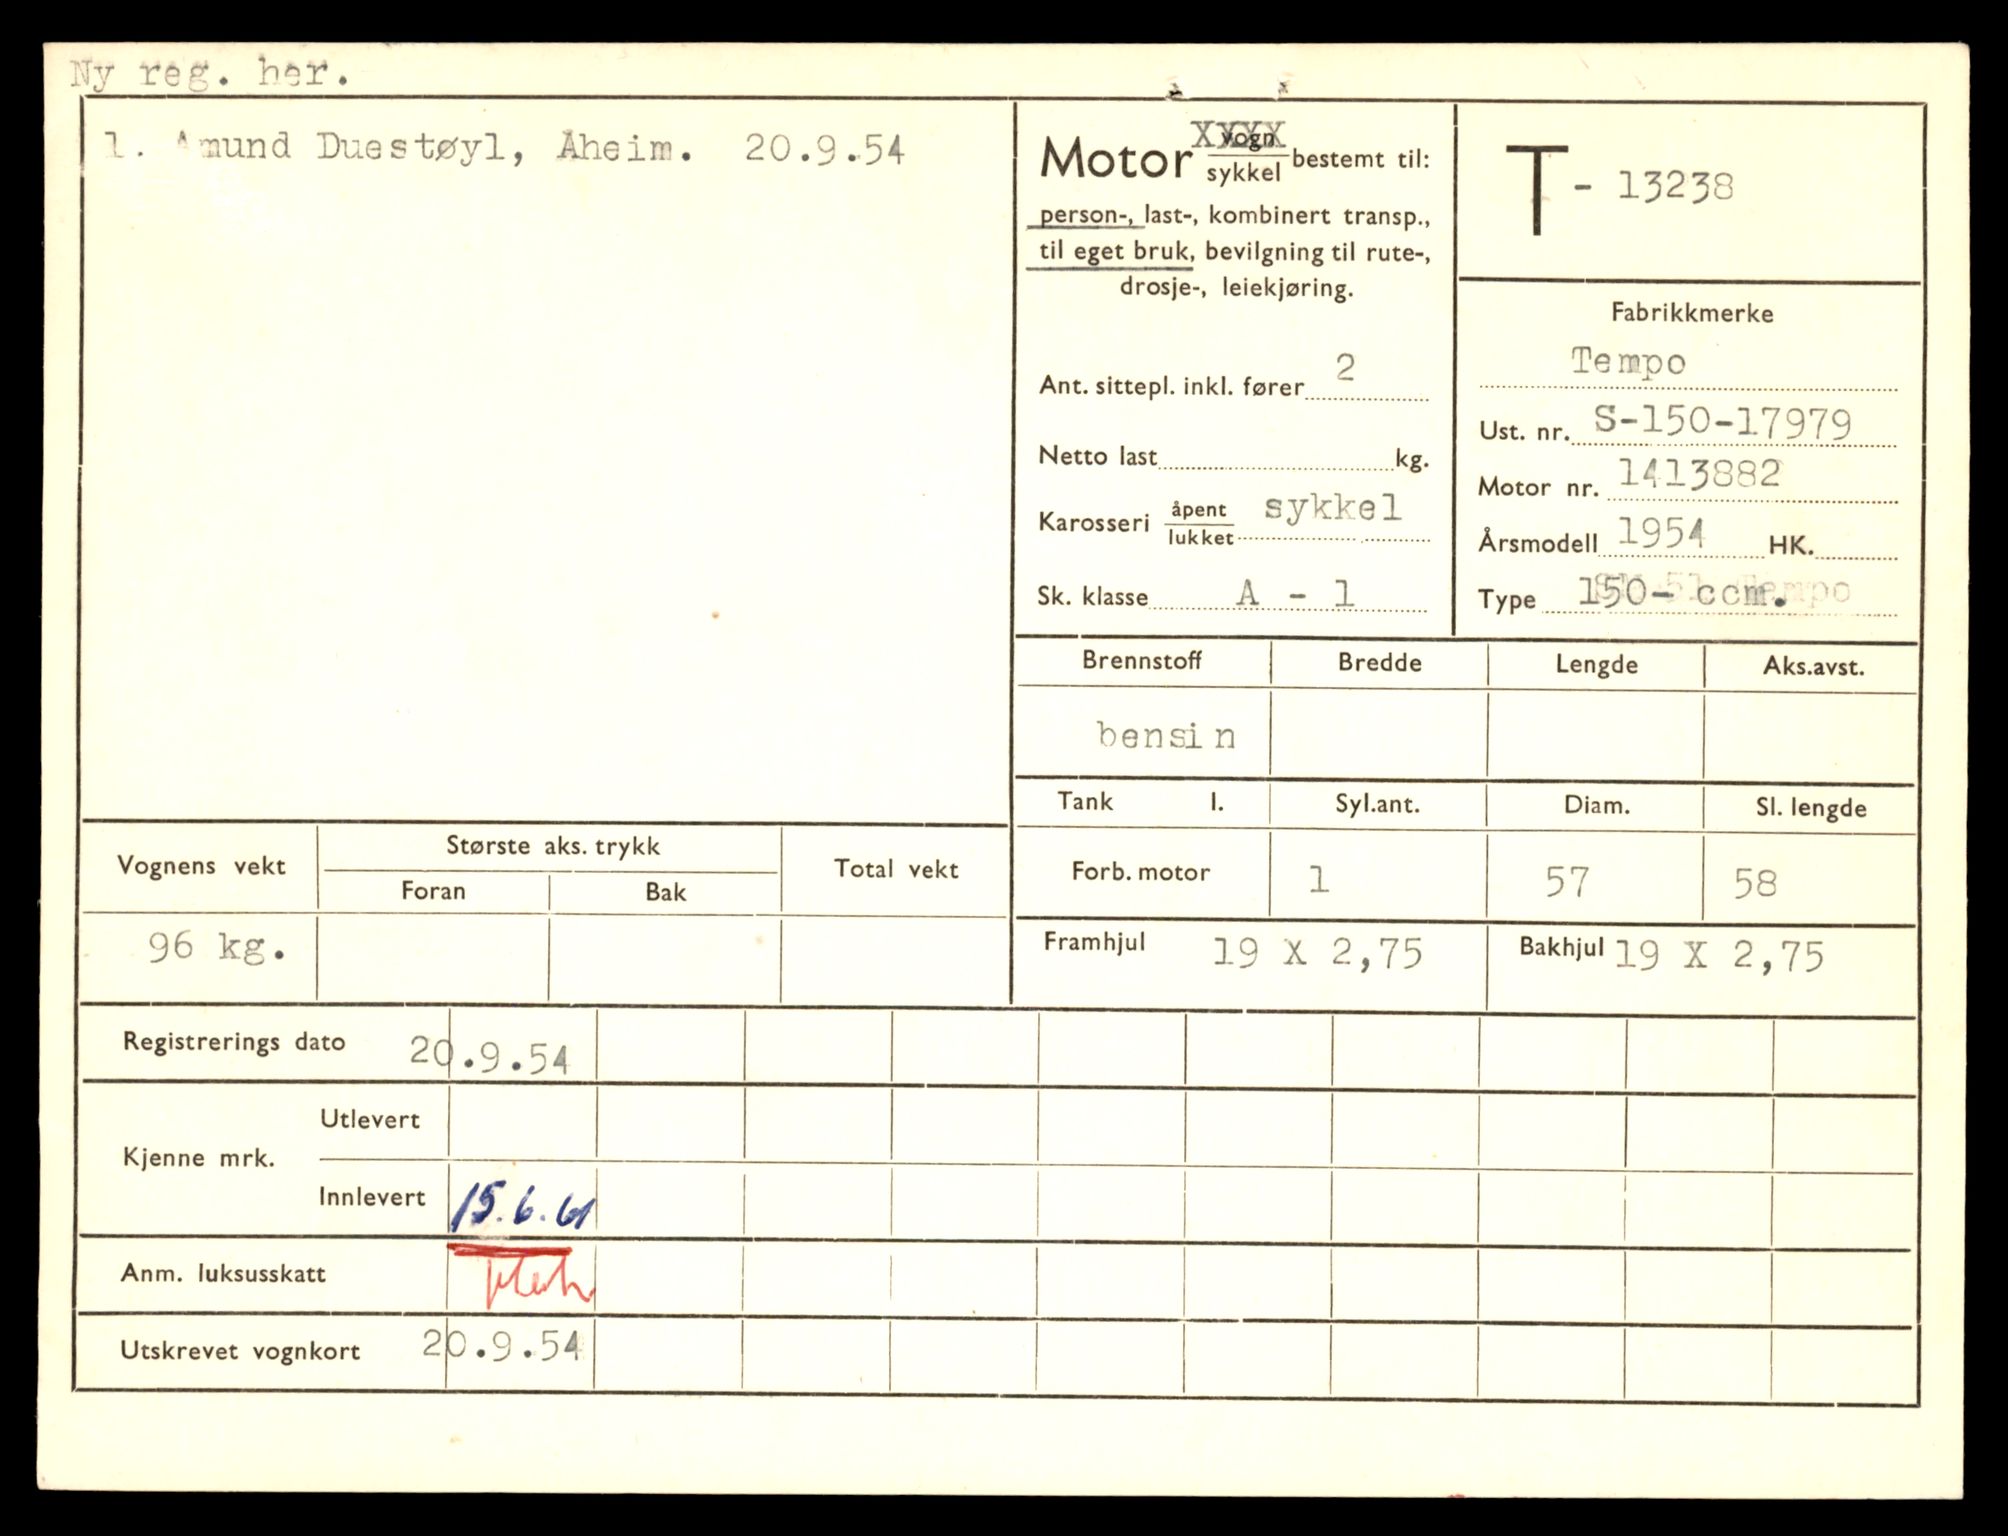 Ny reg. her.
1. Amund Duestøyl, Åheim. 20.9.54
Motor vogn XXXX
sykkel bestemt til:
person-, last-, kombinert transp.,
til eget bruk, bevilgning til rute-,
drosje-, leiekjøring.
Ant. sittepl. inkl. fører 2
Netto last kg.
Karosseri åpent sykkel
lukket
Sk. klasse A - 1
T - 13238
Fabrikkmerke
Tempo
Ust. nr. S-150-17979
Motor nr. 1413882
Årsmodell 1954 HK.
Type 150- ccm.
Brennstoff Bredde Lengde Aks.avst.
bensin
Tank l. Syl.ant. Diam. Sl. lengde
Forb. motor 1 57 58
Framhjul 19 X 2,75 Bakhjul 19 X 2,75
Vognens vekt Største aks. trykk Total vekt
Foran Bak
96 kg.
Registrerings dato 20.9.54
Kjenne mrk. Utlevert
Innlevert 15.6.61
Anm. luksusskatt
Utskrevet vognkort 20.9.54